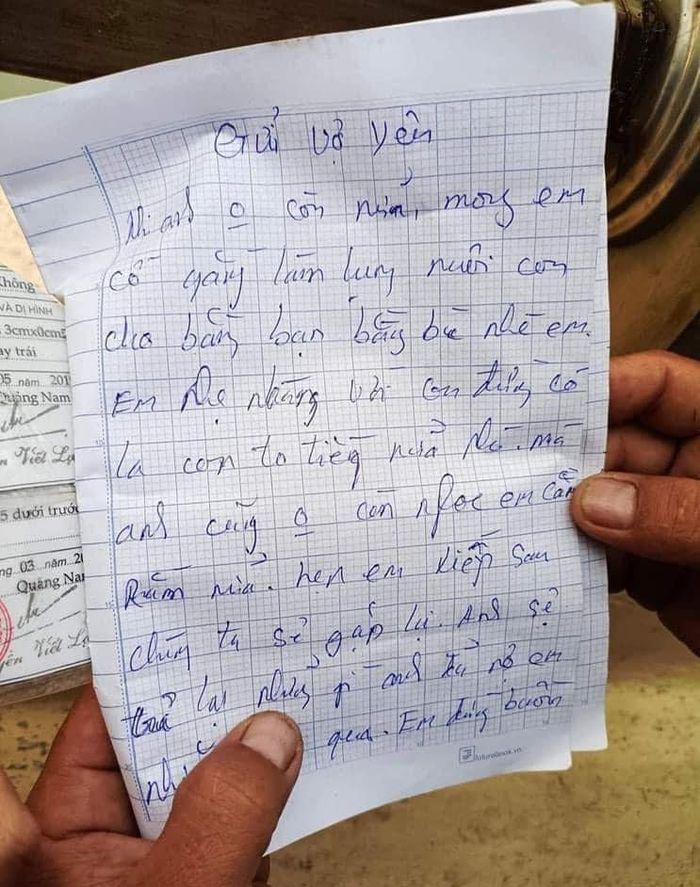 Gửi Vợ Yên
Khi anh o còn nửa, mong em
cố gắng làm lụng nuôi con
cho bằng bạn bằng bè nhé em.
Em nhẹ nhàng với con đừng có
la con to tiếng nửa nhé. mà
anh cũng o còn nghe em cằn
Rằn nửa. hẹn em kiếp sau
chúng ta sẽ gặp lại. Anh sẽ
trả lại những gì anh đã nợ em
qua. Em đừng buồn
Không
VÀ DỊ HÌNH
3cmx0cm5
ay trái
05 năm 201
Quảng Nam
Viết
5 dưới trước
ng 03 năm 2
Quảng Na
yễn Viết